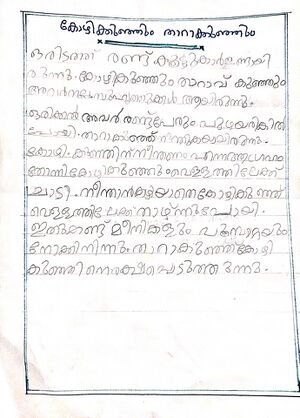 കോഴിക്കുഞ്ഞും താറാക്കുഞ്ഞും
ഒരിടത്ത് രണ്ട് കൂട്ടുകാർ ഉണ്ടായി
രുന്നു. കോഴികുഞ്ഞും താറാവ് കുഞ്ഞും
അവർ നല്ല സുഹൃത്തുക്കൾ ആയിരുന്നു.
ഒരിക്കൽ അവർ രണ്ടുപേരും പുഴയരികിൽ
പോയി. താറാകുഞ്ഞ് നീന്തുകയായിരുന്നു.
കോഴി കുഞ്ഞിന് നീന്തണം എന്ന ആഗ്രഹം
തോന്നി കോഴികുഞ്ഞും വെള്ളത്തിലേക്ക്
ചാടി. നീന്താൻ കഴിയാതെ കോഴികുഞ്ഞ്
വെള്ളത്തിലേക്ക് താഴ്ന്നുപോയി.
ഇതുകണ്ട് മീനുകളും പൂമ്പാറ്റയും
നോക്കിനിന്നും. താറാകുഞ്ഞ് കോഴി
കുഞ്ഞിനെ രക്ഷപെടുത്തുന്നു.